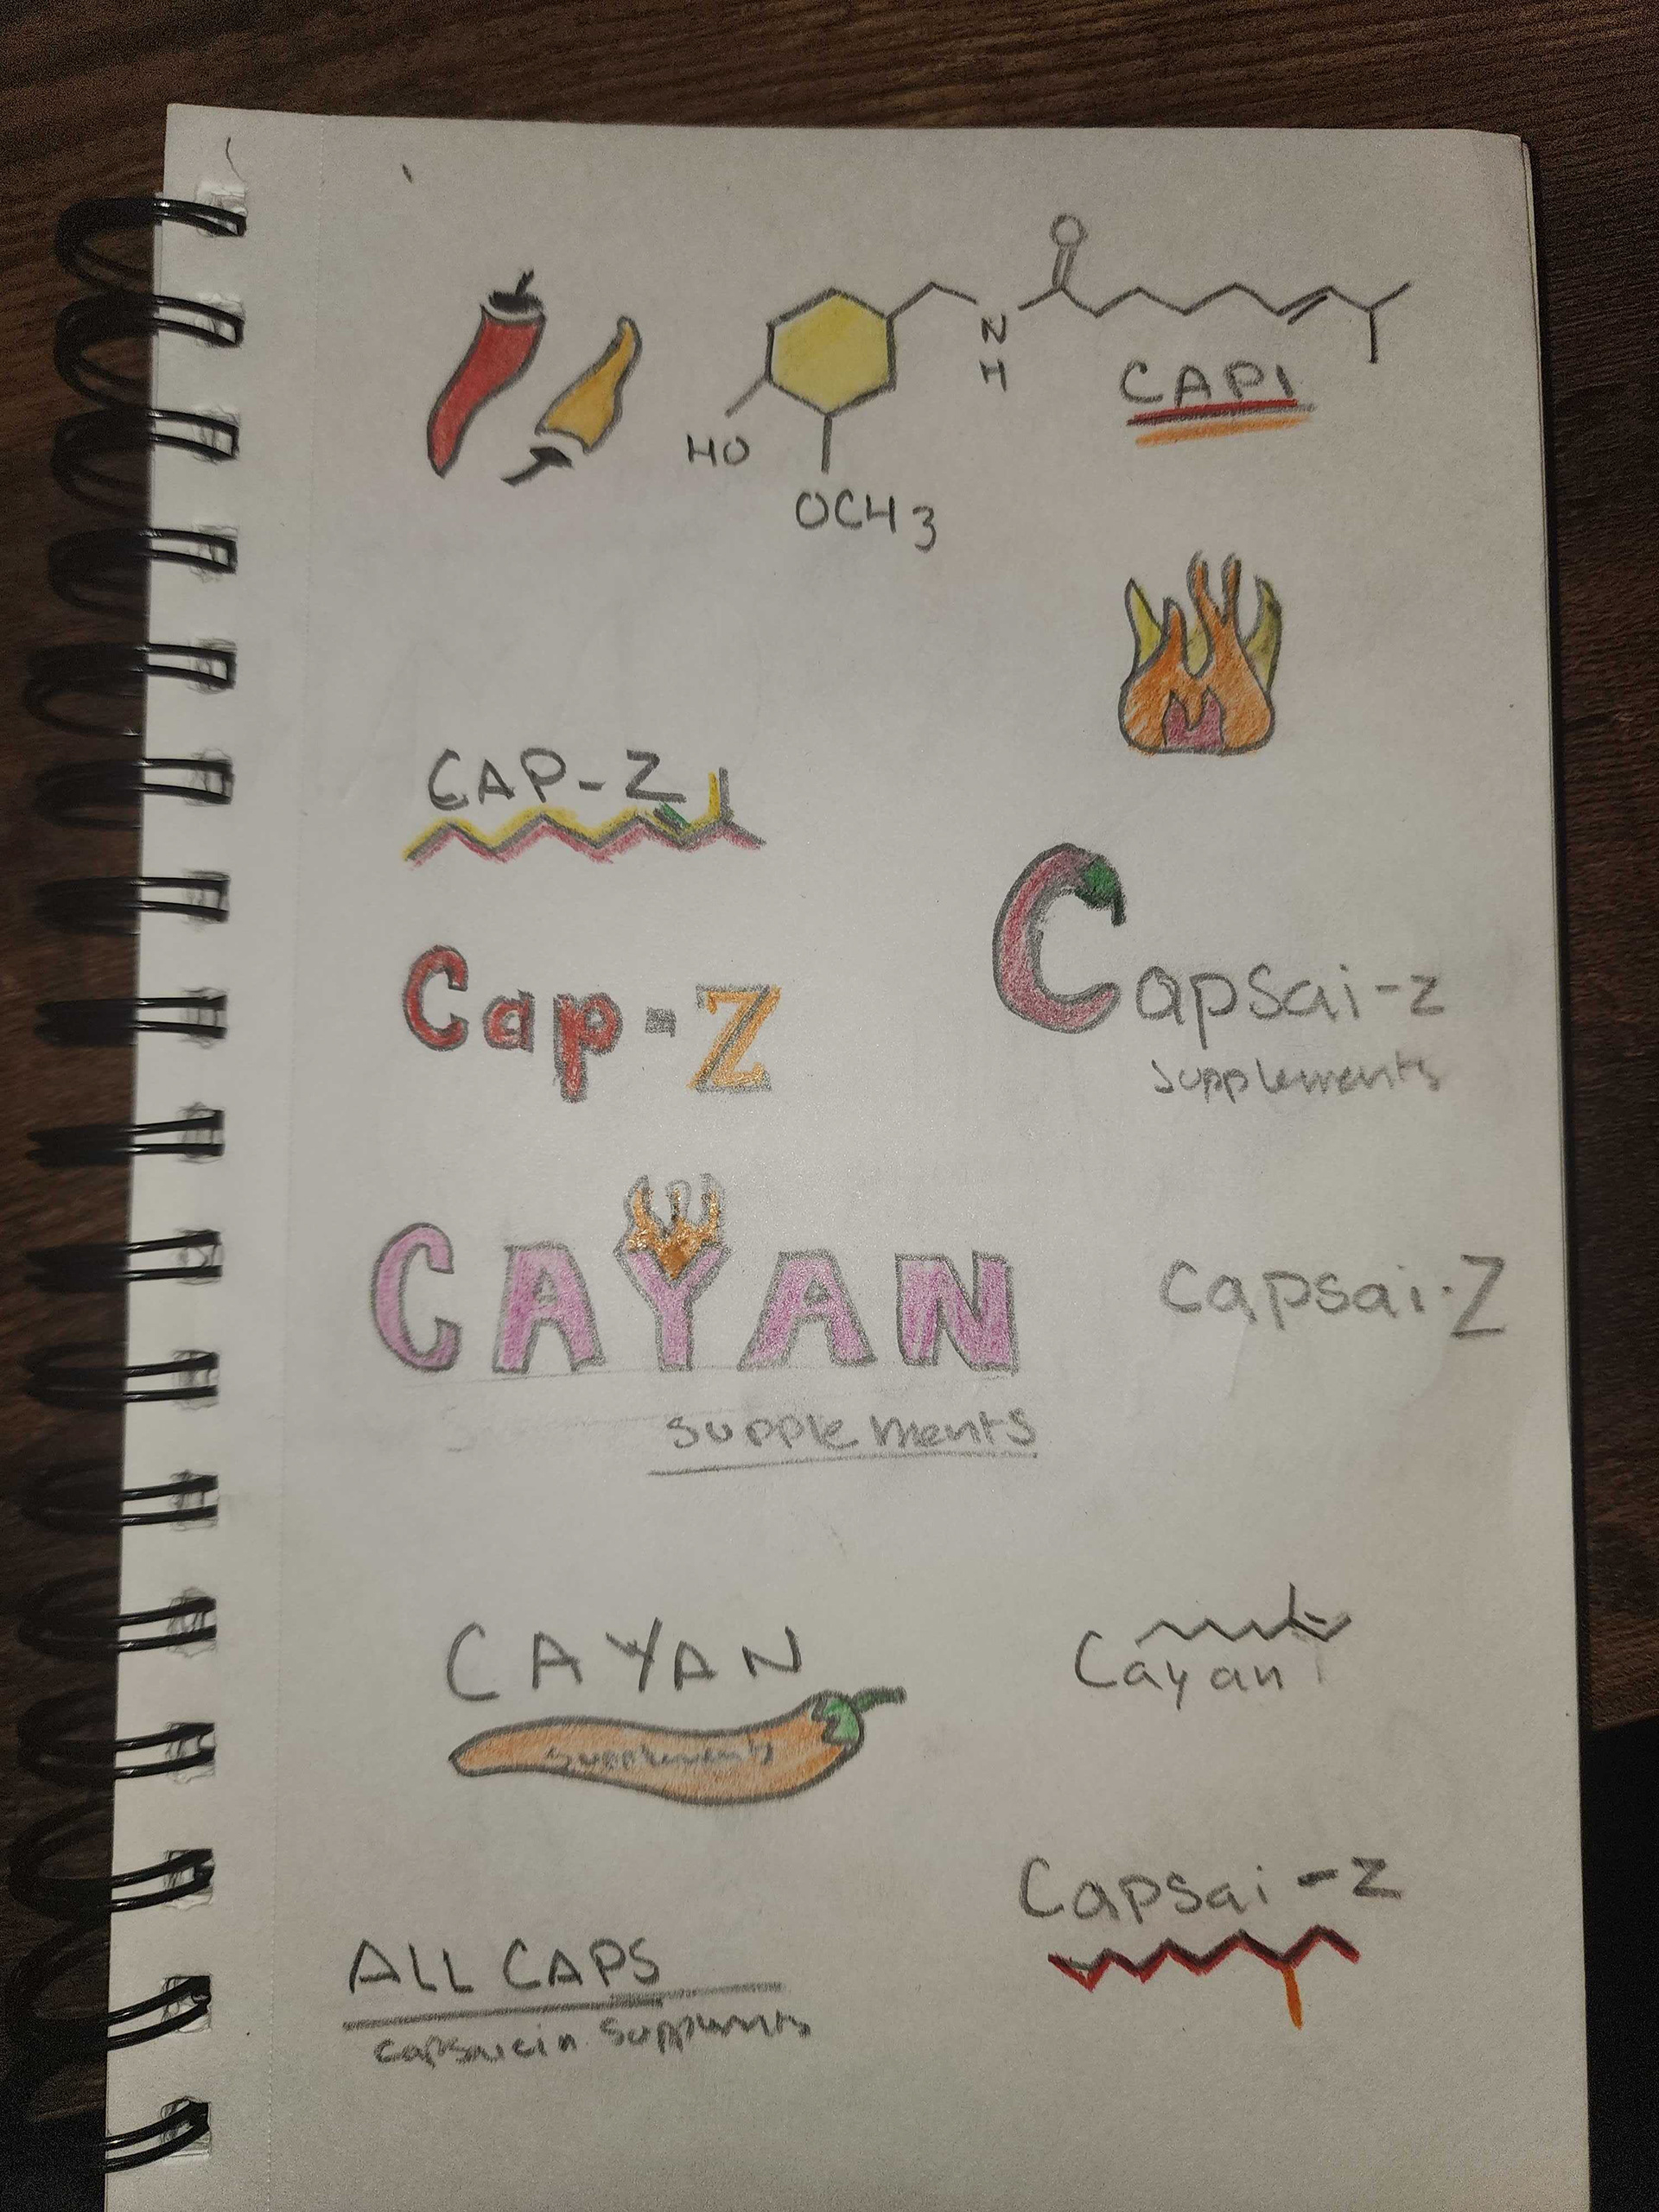 O
N
H
CAPI
HO
OCH3
CAP-Z
Cap-Z
Capsai-z
supplements
CAYAN
supplements
capsai-Z
CAYAN
supplements
Cayan
Capsai-z
ALL CAPS
capsaicin